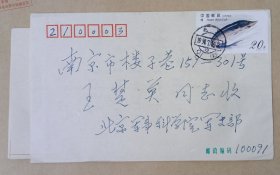 210003
中国邮政
20分
南京市楼子巷157-301号
王楚英同志收
北京军事科学院军支部
邮政编码 100091